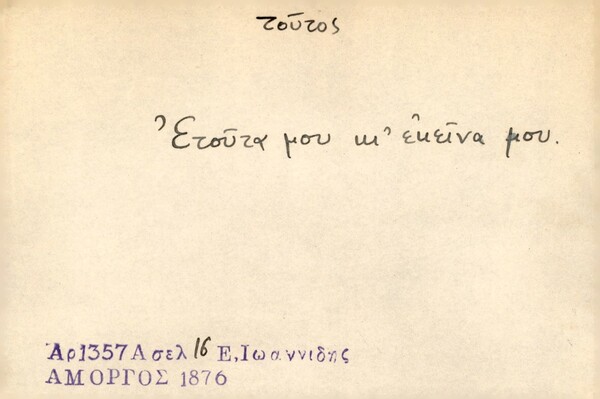 τοῦτος
Ἐτοῦτα μου κι' ἐκεῖνα μου.
Ἀρ1357Α σελ 16 Ε, Ιωαννιδης
ΑΜΟΡΓΟΣ 1876